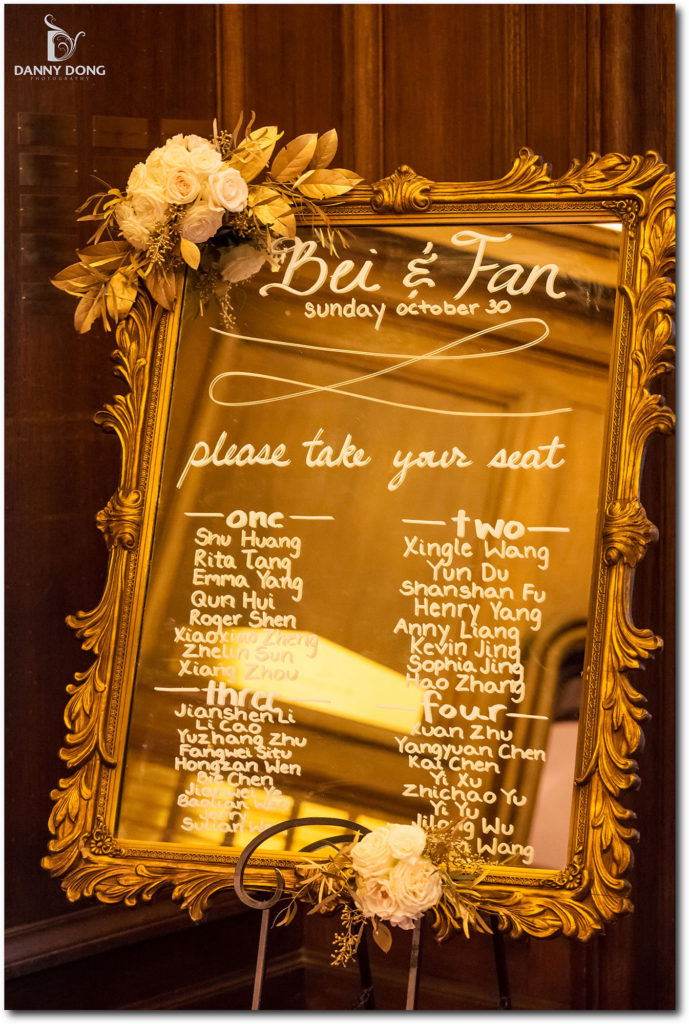 DANNY DONG
PHOTOGRAPHY
Bei & Fan
sunday october 30
please take your seat
one
Shu Huang
Rita Tang
Emma Yang
Qun Hui
Roger Shen
Xiaoxiao Zheng
Zhelin Sun
Xiang Zhou
two
Xingle Wang
Yun Du
Shanshan Fu
Henry Yang
Anny Liang
Kevin Jing
Sophia Jing
Hao Zhang
three
Jianshen Li
Li Cao
Yuzhang Zhu
Fangwei Situ
Hongzan Wen
Bie Chen
Jianwei Ye
Baolian Wen
Sulian
four
Xuan Zhu
Yangyuan Chen
Kai Chen
Yi Xu
Zhichao Yu
Yi Yu
Jilong Wu
Wang